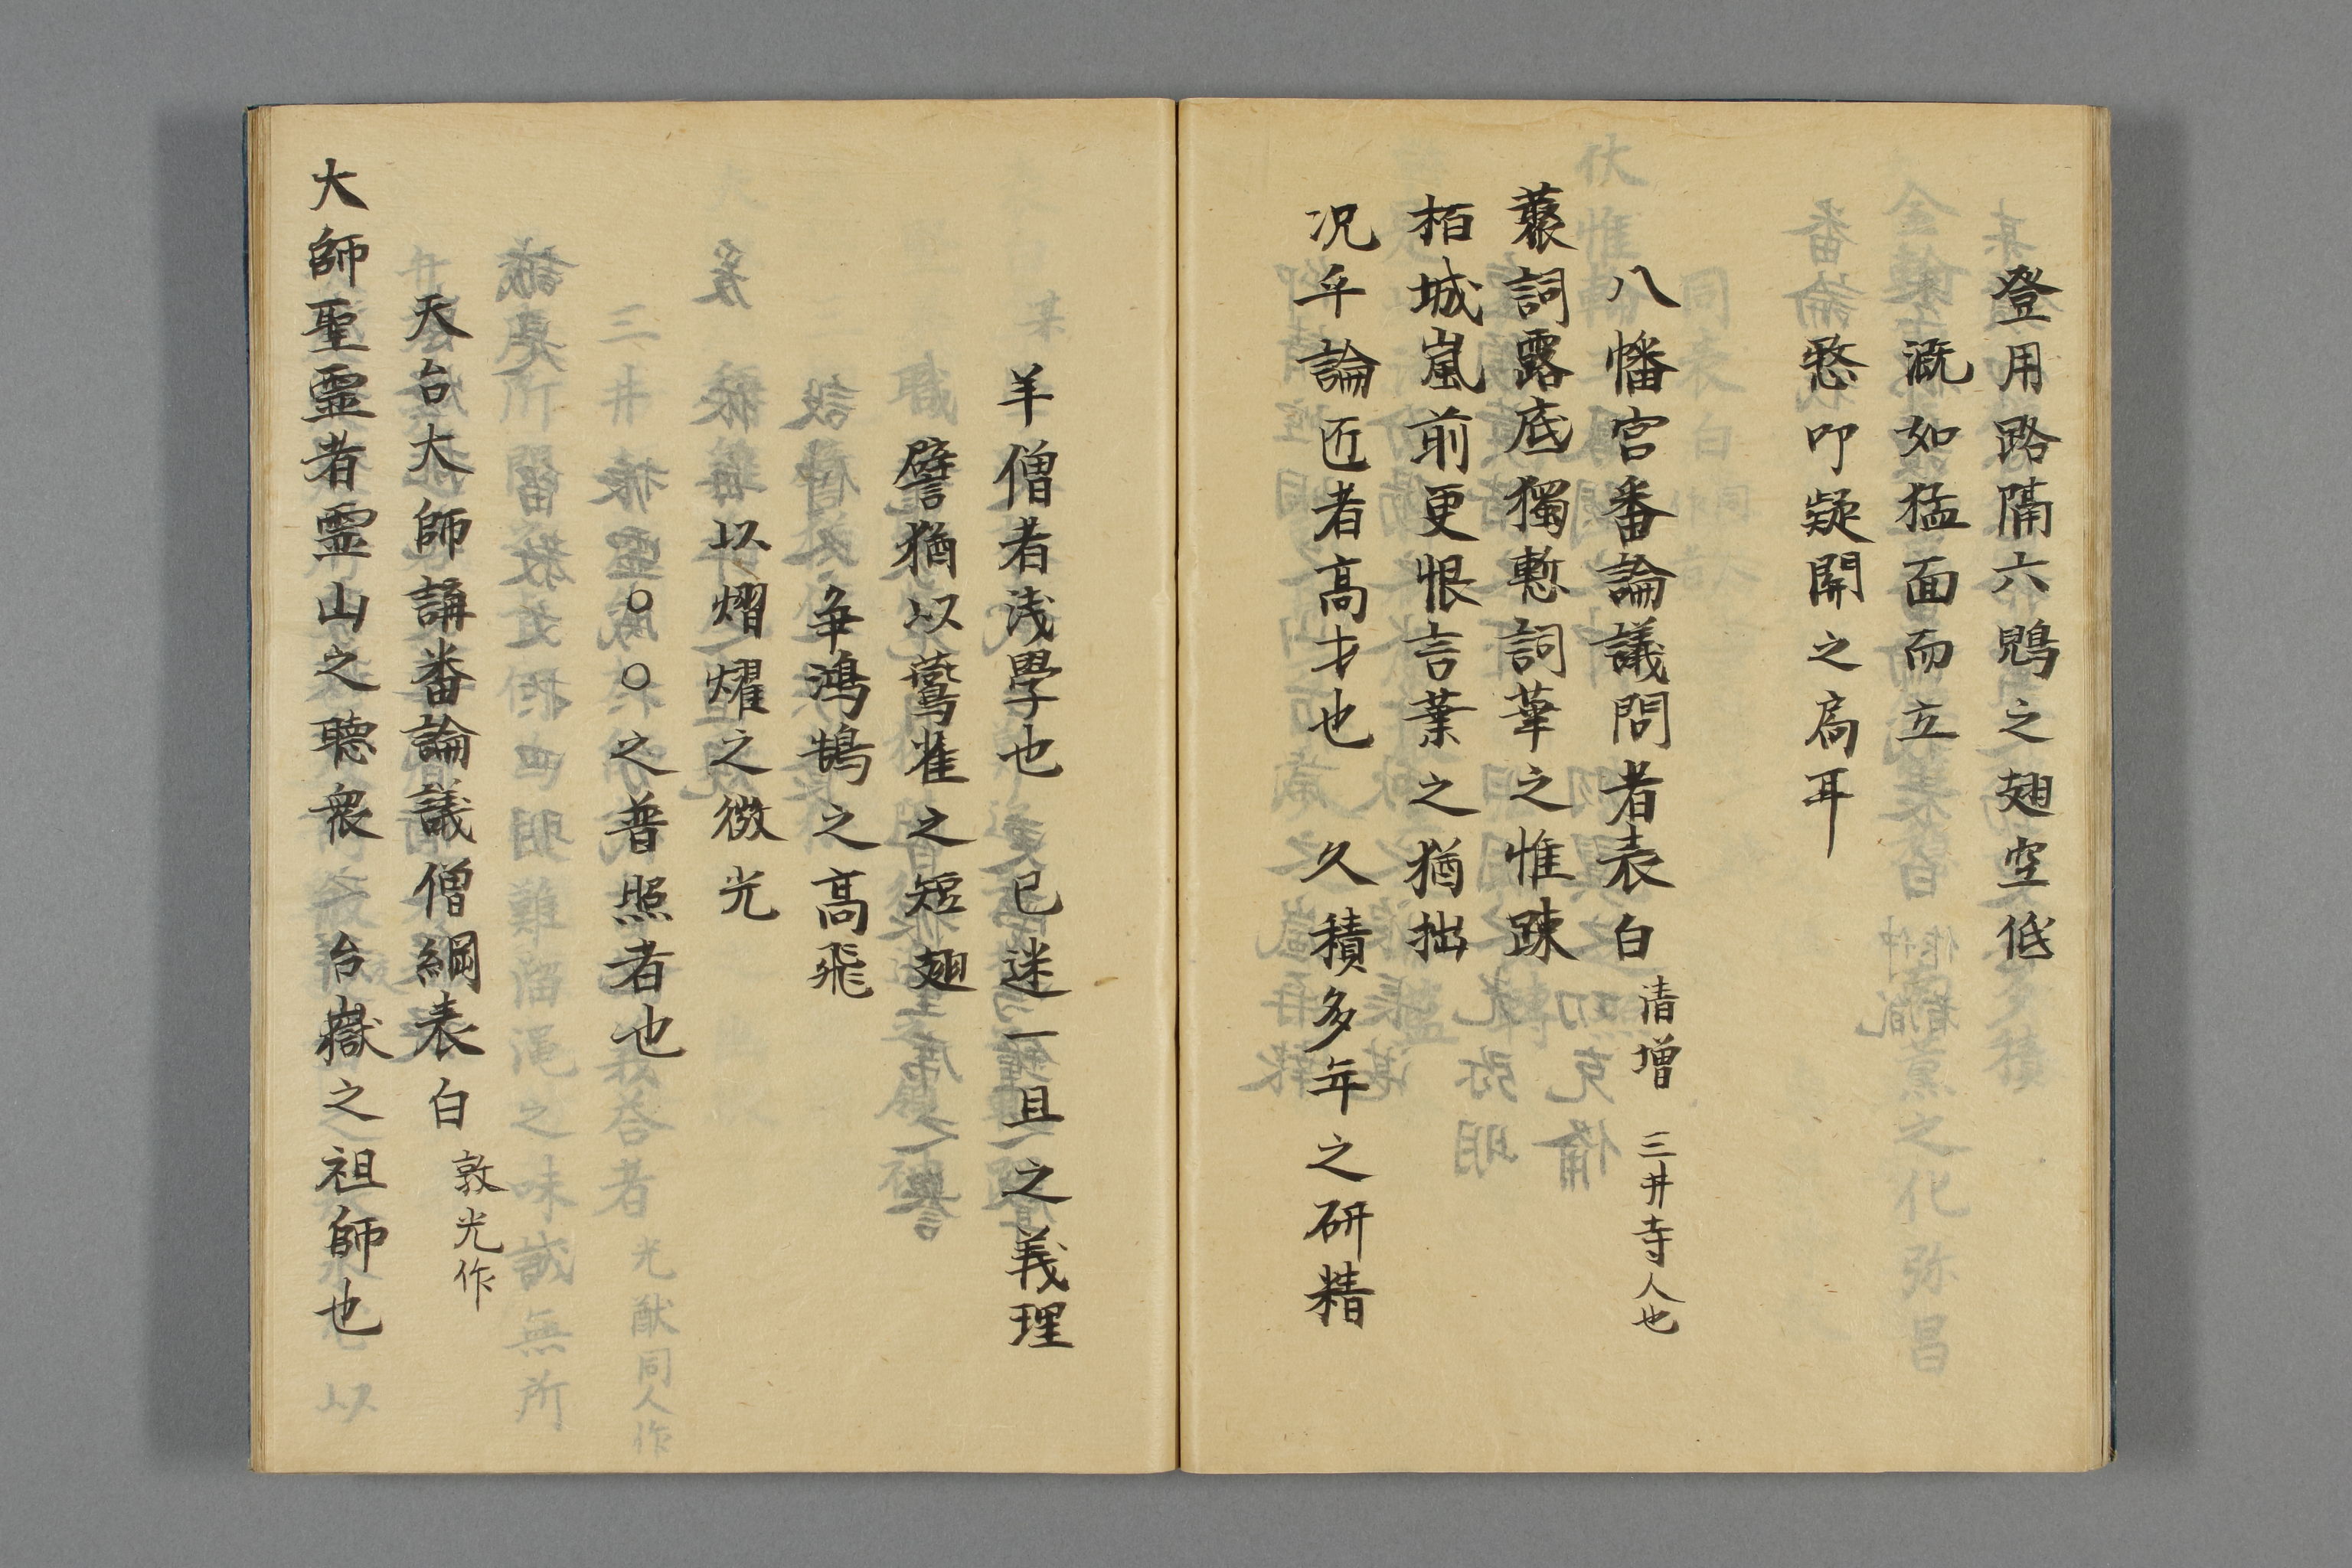 登用路隔六鶂之翅空低
溉如猛面而立
愁叩疑開之扃耳
八幡宮番論議問者表白 清増 三井寺人也
蘂詞露底獨慙詞華之惟疎
栢城嵐前更恨言葉之猶拙
况乎論匠者高才也 久積多年之研精
羊僧者浅學也 已迷一旦之義理
譬猶以鷰雀之短翅
争鴻鵠之高飛
以熠燿之微光
○○之普照者也
天台大師講番論議僧綱表白 敦光作
大師聖霊者霊山之聴衆 台嶽之祖師也